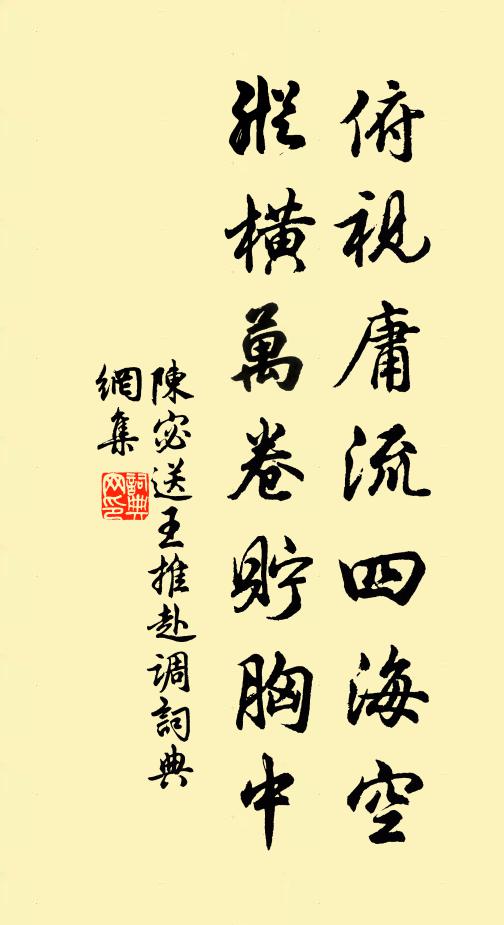 俯視庸流四海空
縱橫萬卷貯胸中
陳宓送王推赴調詞典
網集
詞典
网印